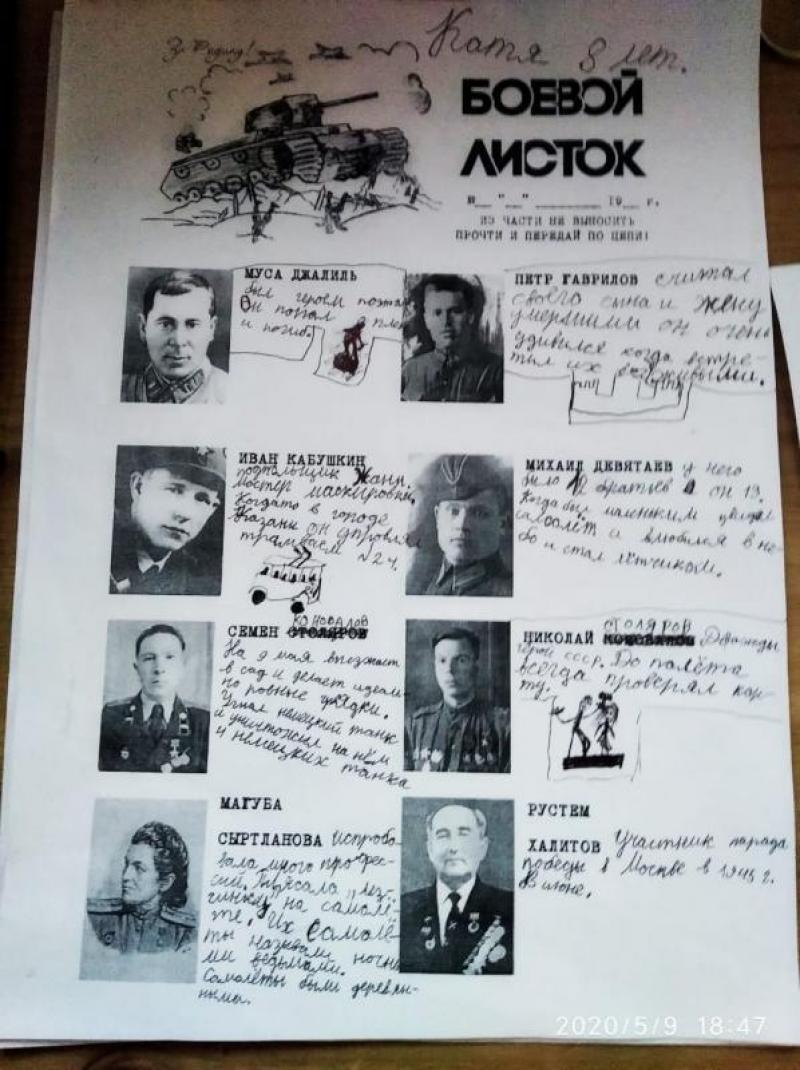 За Родину!
Катя 8 лет.
БОЕВОЙ
ЛИСТОК
№__ "__"________ 19__ г.
ИЗ ЧАСТИ НЕ ВЫНОСИТЬ
ПРОЧТИ И ПЕРЕДАЙ ПО ЦЕПИ!
МУСА ДЖАЛИЛЬ
был героем поэтом
Он попал в плен
и погиб.
ПЕТР ГАВРИЛОВ считал
своего сына и жену
умершими он очень
удивился когда встре-
тил их живыми.
ИВАН КАБУШКИН
подпольщик Жан.
Мастер маскировки.
Когдато в городе
Казани он управлял
трамваем №24.
МИХАИЛ ДЕВЯТАЕВ у него
было 12 братьев а он 13.
Когда был маленьким увидел
самолёт и влюбился в не-
бо и стал лётчиком.
КОНОВАЛОВ
СЕМЕН СТОЛЯРОВ
На 9 мая выезжает
в сад и делает идеаль-
но ровные грядки.
Угнал немецкий танк
и уничтожил на нём
4 немецких танка
СТОЛЯРОВ
НИКОЛАЙ Дважды
герой СССР. До полёта
всегда проверял кар-
ту.
МАГУБА
СЫРТЛАНОВА Испробо-
вала много профес-
сий. Плясала "лез-
гинку" на самолё-
те. Их самолё-
ты называли ночны-
ми ведьмами.
Самолёты были деревян-
ными.
РУСТЕМ
ХАЛИТОВ Участник парада
победы в Москве в 1945 г.
В июне.
2020/5/9 18:47